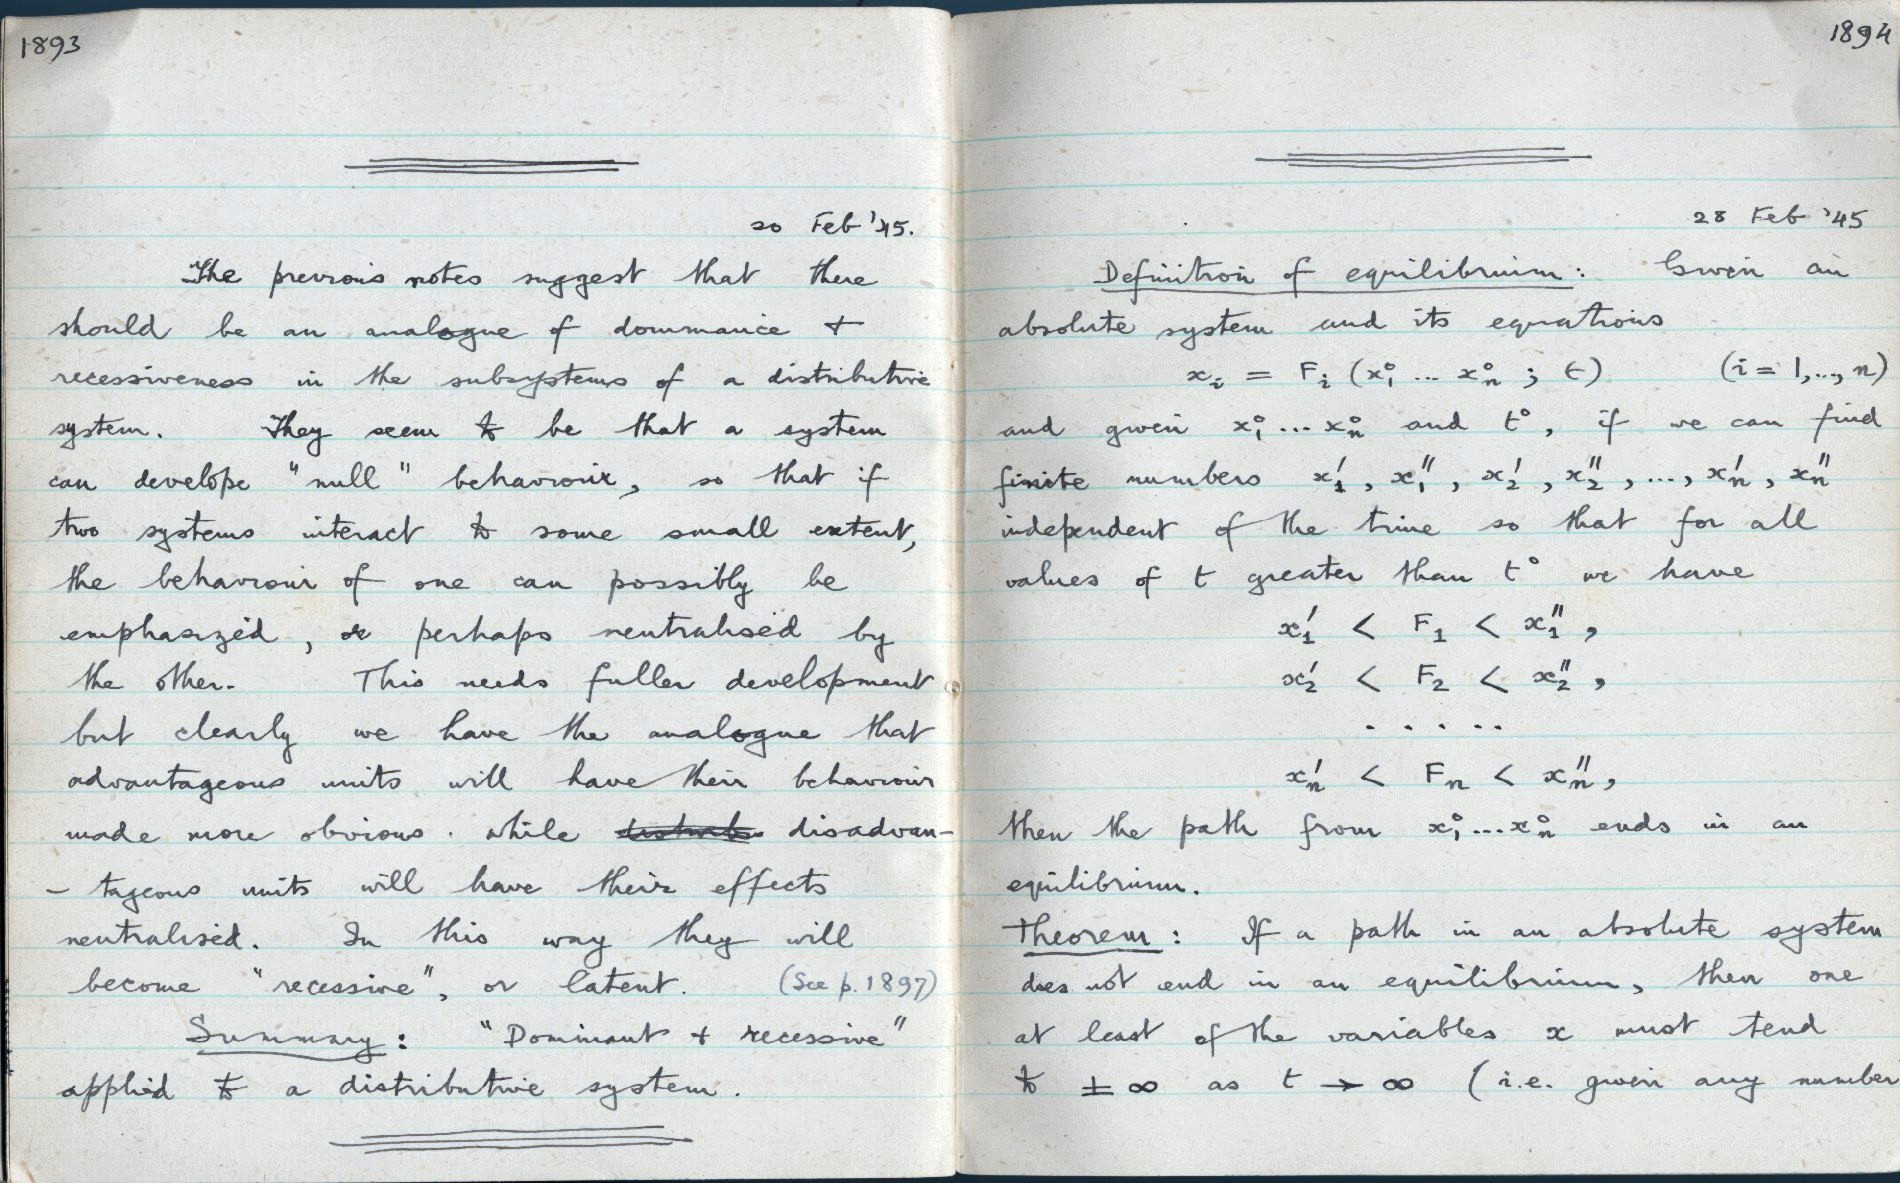 1893
20 Feb '45.
The previous notes suggest that there
should be an analogue of dominance +
recessiveness in the subsystems of a distributive
system. They seem to be that a system
can develope "null" behaviour, so that if
two systems interact to some small extent,
the behaviour of one can possibly be
emphasized, or perhaps neutralised by
the other. This needs fuller development
but clearly we have the analogue that
advantageous units will have their behaviour
made more obvious. while disadvan-
- tageous units will have their effects
neutralised. In this way they will
become "recessive", or latent. (See p. 1897)
Summary: "Dominant + recessive"
applied to a distributive system.
1894
28 Feb '45
Definition of equilibrium: Given an
absolute system and its equations
xᵢ = Fᵢ (x₁° ... xₙ° ; t) (i = 1,..., n)
and given x₁° ... xₙ° and t°, if we can find
finite numbers x₁′, x₁″, x₂′, x₂″, ..., xₙ′, xₙ″
independent of the time so that for all
values of t greater than t° we have
x₁′ < F₁ < x₁″,
x₂′ < F₂ < x₂″,
. . . . .
xₙ′ < Fₙ < xₙ″,
then the path from x₁° ... xₙ° ends in an
equilibrium.
Theorem: If a path in an absolute system
does not end in an equilibrium, then one
at least of the variables x must tend
to ± ∞ as t → ∞ (i.e. given any number